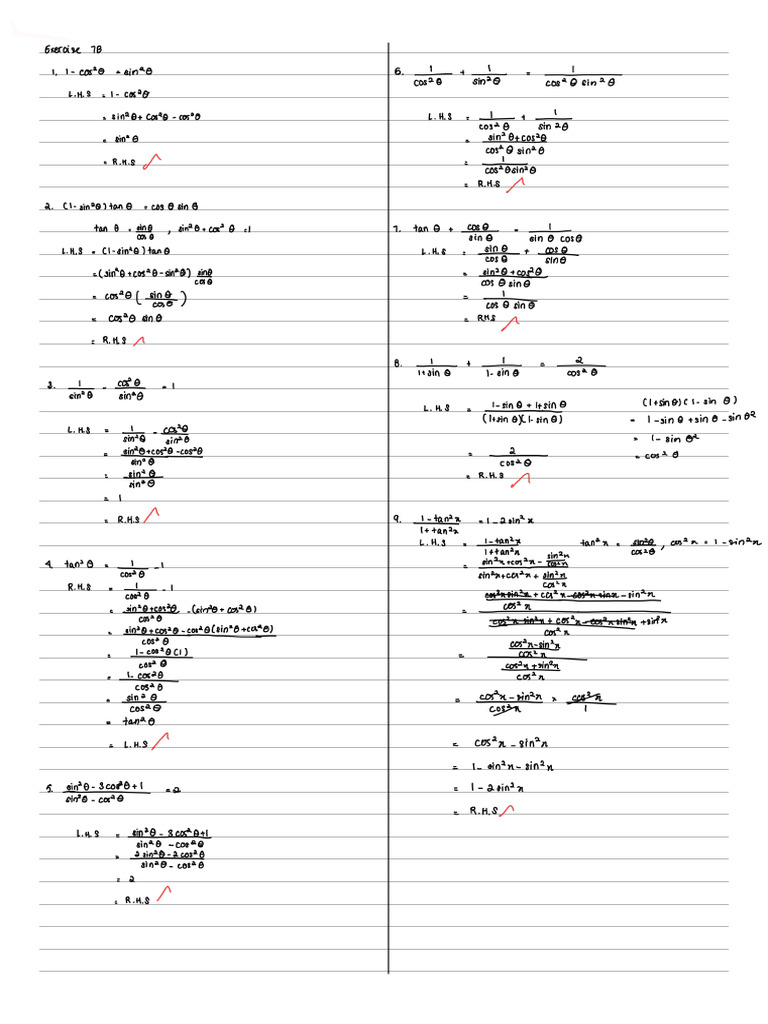 Exercise 7B
1. 1 - cos²θ = sin²θ
L.H.S = 1 - cos²θ
= sin²θ + cos²θ - cos²θ
= sin²θ
= R.H.S
2. (1 - sin²θ) tan θ = cos θ sin θ
tan θ = sinθ/cosθ , sin²θ + cos²θ = 1
L.H.S = (1 - sin²θ) tan θ
= (sin²θ + cos²θ - sin²θ) sinθ/cosθ
= cos²θ ( sinθ/cosθ )
= cos²θ sin θ
= R.H.S
3. 1/sin²θ - cos²θ/sin²θ = 1
L.H.S = 1/sin²θ - cos²θ/sin²θ
= (sin²θ + cos²θ - cos²θ)/sin²θ
= sin²θ/sin²θ
= 1
= R.H.S
4. tan²θ = 1/cos²θ - 1
R.H.S = 1/cos²θ - 1
= (sin²θ + cos²θ)/cos²θ - (sin²θ + cos²θ)
= (sin²θ + cos²θ - cos²θ (sin²θ + cos²θ))/cos²θ
= (1 - cos²θ (1))/cos²θ
= (1 - cos²θ)/cos²θ
= sin²θ/cos²θ
= tan²θ
= L.H.S
5. (sin²θ - 3cos²θ + 1)/(sin²θ - cos²θ) = 2
L.H.S = (sin²θ - 3cos²θ + 1)/(sin²θ - cos²θ)
= (2sin²θ - 2cos²θ)/(sin²θ - cos²θ)
= 2
= R.H.S
6. 1/cos²θ + 1/sin²θ = 1/(cos²θ sin²θ)
L.H.S = 1/cos²θ + 1/sin²θ
= (sin²θ + cos²θ)/(cos²θ sin²θ)
= 1/(cos²θ sin²θ)
= R.H.S
7. tan θ + cosθ/sinθ = 1/(sin θ cosθ)
L.H.S = sinθ/cosθ + cosθ/sinθ
= (sin²θ + cos²θ)/(cos θ sin θ)
= 1/(cos θ sin θ)
= RHS
8. 1/(1 + sin θ) + 1/(1 - sin θ) = 2/cos²θ
L.H.S = (1 - sin θ + 1 + sin θ)/((1 + sin θ)(1 - sin θ))
= 2/cos²θ
= R.H.S
(1 + sin θ)(1 - sin θ)
= 1 - sin θ + sin θ - sin θ²
= 1 - sin θ²
= cos²θ
9. (1 - tan²x)/(1 + tan²x) = 1 - 2sin²x
L.H.S = (1 - tan²x)/(1 + tan²x) tan²x = sin²θ/cos²θ , cos²x = 1 - sin²x
= (sin²x + cos²x - sin²x/cos²x)/(sin²x + cos²x + sin²x/cos²x)
= ((cos²x sin²x + cos²x - cos²x sinx - sin²x)/cos²x)/((cos²x sin²x + cos²x - cos²x sin²x + sin²x)/cos²x)
= ((cos²x - sin²x)/cos²x)/((cos²x + sin²x)/cos²x)
= (cos²x - sin²x)/cos²x × cos²x/1
= cos²x - sin²x
= 1 - sin²x - sin²x
= 1 - 2sin²x
= R.H.S